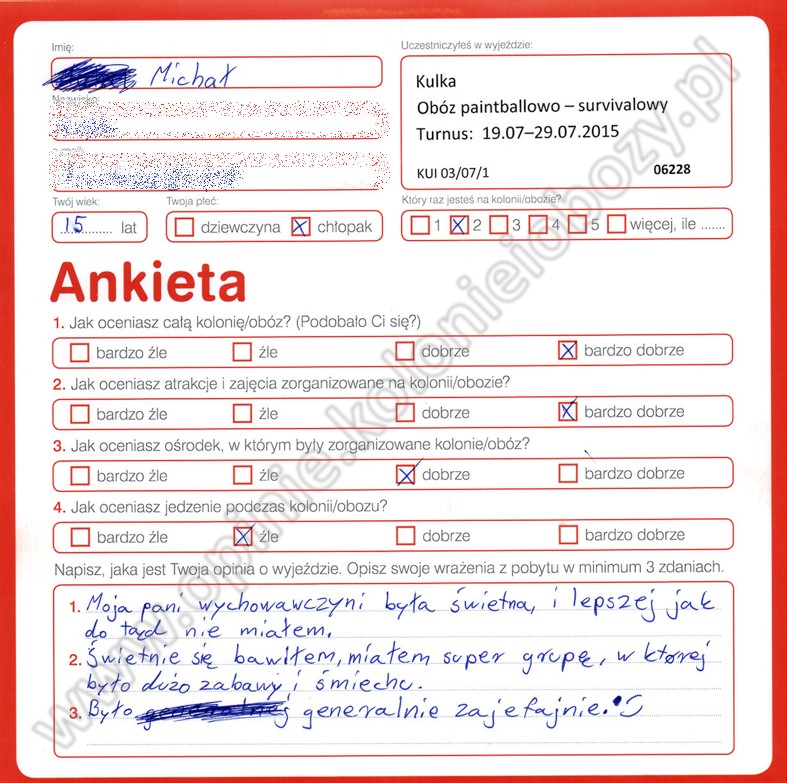 Imię:
Michał
Nazwisko:
Twój wiek:
15 lat
Twoja płeć:
dziewczyna chłopak
Uczestniczyłeś w wyjeździe:
Kulka
Obóz paintballowo – survivalowy
Turnus: 19.07–29.07.2015
KUI 03/07/1 06228
Który raz jesteś na kolonii/obozie?
1 2 3 4 5 więcej, ile .......
Ankieta
1. Jak oceniasz całą kolonię/obóz? (Podobało Ci się?)
bardzo źle źle dobrze bardzo dobrze
2. Jak oceniasz atrakcje i zajęcia zorganizowane na kolonii/obozie?
bardzo źle źle dobrze bardzo dobrze
3. Jak oceniasz ośrodek, w którym były zorganizowane kolonie/obóz?
bardzo źle źle dobrze bardzo dobrze
4. Jak oceniasz jedzenie podczas kolonii/obozu?
bardzo źle źle dobrze bardzo dobrze
Napisz, jaka jest Twoja opinia o wyjeździe. Opisz swoje wrażenia z pobytu w minimum 3 zdaniach.
1. Moja pani wychowawczyni była świetna, i lepszej jak
do tąd nie miałem.
2. Świetnie się bawiłem, miałem super grupę, w której
było dużo zabawy i śmiechu.
3. Było generalnie zajefajnie.
www.opinie.kolonieiobozy.pl